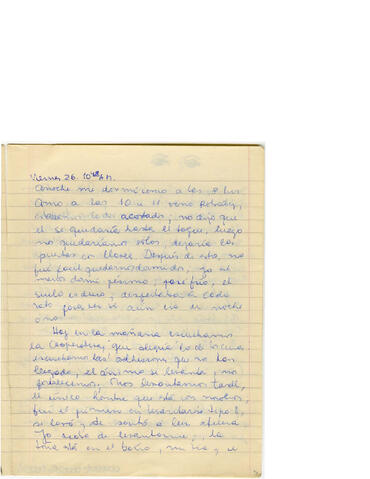 Viernes 26. 10 AM.
Anoche me dormí como a las 9 hrs
como a las 10 u 11 vino
todos acostados, nos dijo que
él se quedaría hasta el toque, luego
nos quedaríamos solos, dejaría las
puertas con llave. Después de esto, no
fue fácil quedarnos dormidos, yo al
menos dormí pésimo, pasé frío, el
suelo es duro, despertaba a cada
rato para ver si aún era de noche
o no.
Hoy en la mañana escuchamos
la Cooperativa, que alegría
escuchamos las adhesiones que nos han
llegado, el ánimo se levanta, nos
fortalecemos. Nos levantamos tarde,
el único hombre que está con nosotros,
fue el primero en levantarse tipo 8,
se lavó, se sentó a leer afuera
Yo recién de levantarme, la
está en el baño,